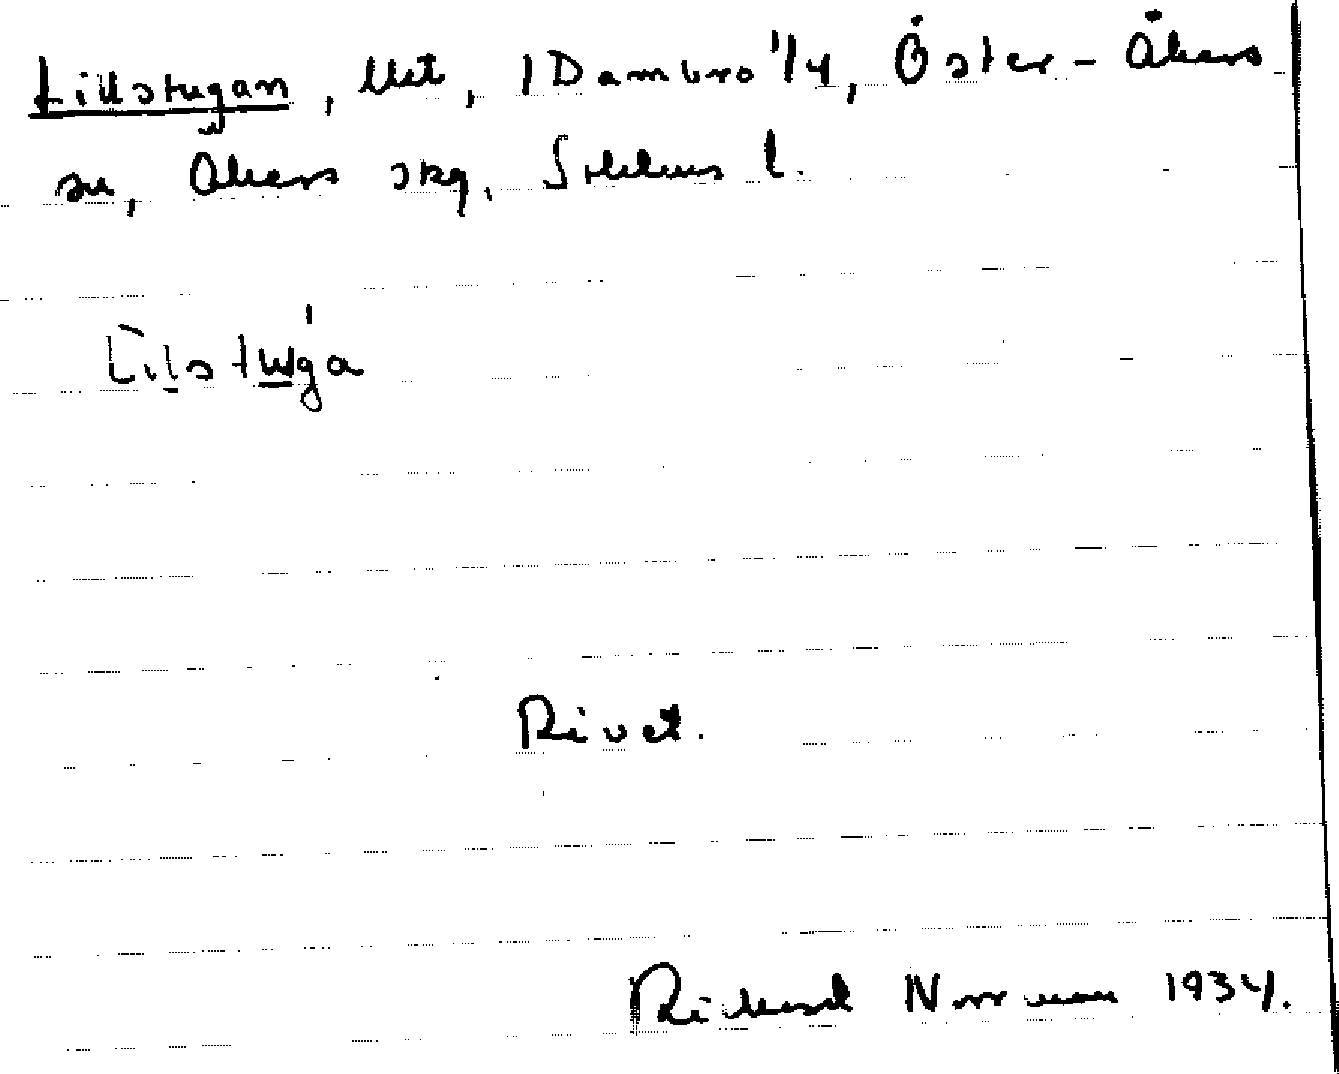 Lillstugan, Utt, 1 Dambro 1/4, Öster-Åkers
sn, Åkers skg, Sthlms l.
Lilstuga
Rivet.
Rickard Norrman 1934.